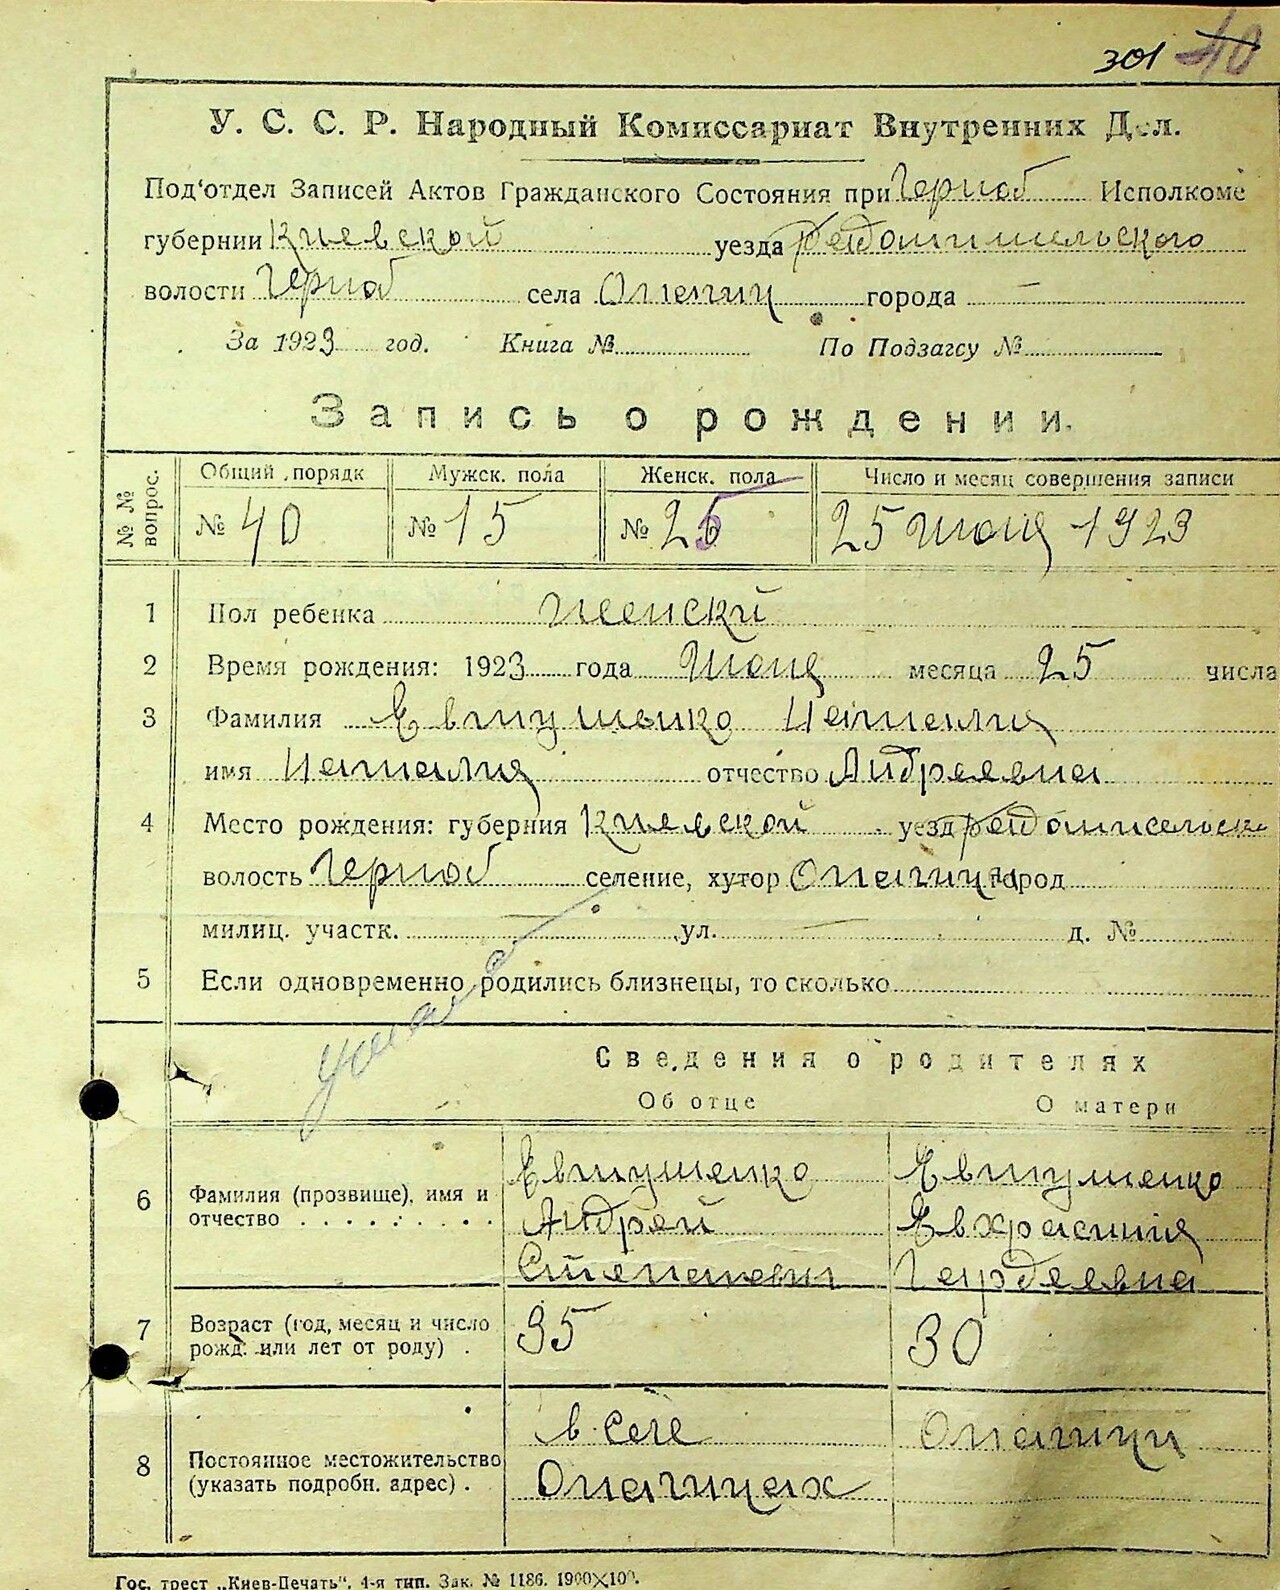 301 40
У. С. С. Р. Народный Комиссариат Внутренних Дел.
Под'отдел Записей Актов Гражданского Состояния при Черноб Исполкоме
губернии Киевской уезда Радомишельского
волости Черноб села Опачич города —
За 1923 год. Книга № По Подзагсу №
Запись о рождении.
№ № вопрос. Общий порядк Мужск. пола Женск. пола Число и месяц совершения записи
№ 40 № 15 № 25 25 Июня 1923
1 Пол ребенка женский
2 Время рождения: 1923 года Июня месяца 25 числа
3 Фамилия Евтушенко Наталия
имя Наталия отчество Андреевна
4 Место рождения: губерния Киевской уезд Радомисельск
волость Черноб селение, хутор Опачичи город
милиц. участк. — ул. — д. №
5 Если одновременно родились близнецы, то сколько
Сведения о родителях
Об отце О матери
6 Фамилия (прозвище), имя и отчество Евтушенко Андрей Степанович Евтушенко Евхрасиния Гаурдеевна
7 Возраст (год, месяц и число рожд. или лет от роду) . 35 30
8 Постоянное местожительство (указать подробн. адрес) . в селе Опачицах Опачичи
Гос. трест „Киев-Печать“. 4-я тип. Зак. № 1186. 1900×100.